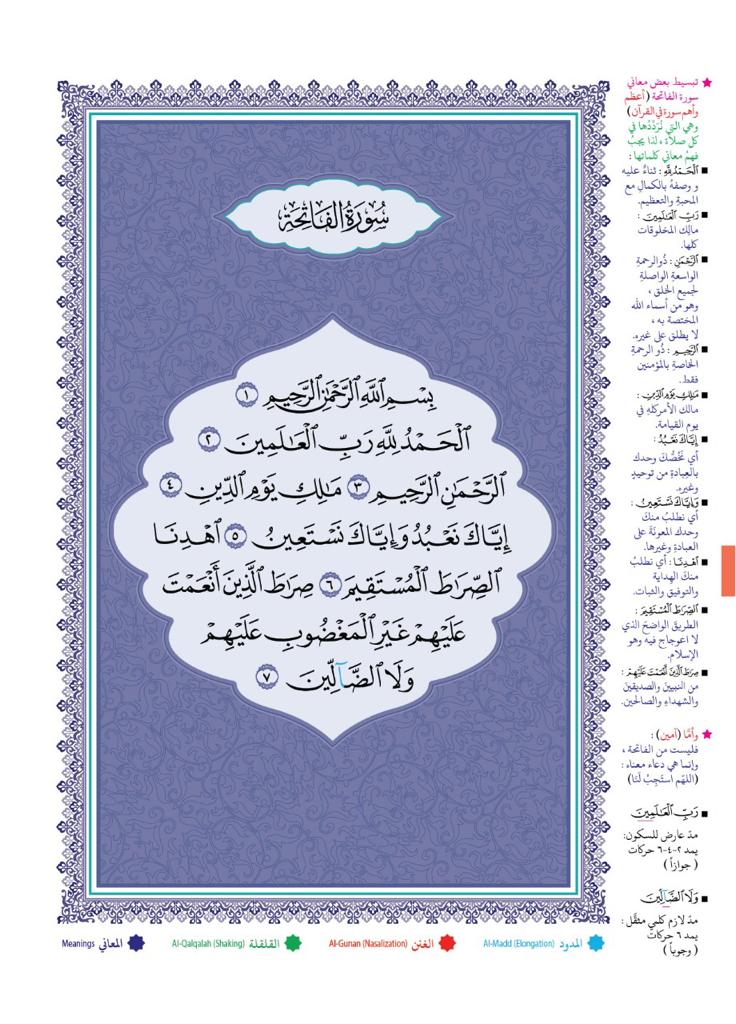 سُورَةُ الْفَاتِحَةِ
بِسْمِ اللَّهِ الرَّحْمَٰنِ الرَّحِيمِ ١
الْحَمْدُ لِلَّهِ رَبِّ الْعَالَمِينَ ٢
الرَّحْمَٰنِ الرَّحِيمِ ٣ مَالِكِ يَوْمِ الدِّينِ ٤
إِيَّاكَ نَعْبُدُ وَإِيَّاكَ نَسْتَعِينُ ٥ اهْدِنَا
الصِّرَاطَ الْمُسْتَقِيمَ ٦ صِرَاطَ الَّذِينَ أَنْعَمْتَ
عَلَيْهِمْ غَيْرِ الْمَغْضُوبِ عَلَيْهِمْ
وَلَا الضَّآلِّينَ ٧
تبسيط بعض معاني
سورة الفاتحة (أعظم
وأهم سورة في القرآن)
وهي التي نُرَدِّدُها في
كل صلاة، لذا يجبُ
فهمُ معاني كلماتها:
الْحَمْدُ لِلَّهِ: ثناءٌ عليه
ووصفهُ بالكمالِ مع
المحبةِ والتعظيم.
رَبِّ الْعَالَمِينَ:
مالِك المخلوقات
كلها.
الرَّحْمَٰنِ: ذُو الرحمةِ
الواسعةِ الواصلةِ
لجميع الخلق،
وهو من أسماء الله
المختصة به،
لا يطلق على غيره.
الرَّحِيمِ: ذُو الرحمةِ
الخاصةِ بالمؤمنين
فقط.
مَالِكِ يَوْمِ الدِّينِ:
مالك الأمركله في
يوم القيامة.
إِيَّاكَ نَعْبُدُ:
أي نَخُصُّكَ وحدك
بالعبادةِ من توحيدٍ
وغيره.
وَإِيَّاكَ نَسْتَعِينُ:
أي نطلبُ منكَ
وحدك المعونةَ على
العبادةِ وغيرها.
اهْدِنَا: أي نطلبُ
منكَ الهداية
والتوفيق والثبات.
الصِّرَاطَ الْمُسْتَقِيمَ:
الطريقَ الواضحَ الذي
لا اعوجاج فيه وهو
الإسلام.
صِرَاطَ الَّذِينَ أَنْعَمْتَ عَلَيْهِمْ:
من النبيينَ والصديقينَ
والشهداءِ والصالحين.
وأمَّا (آمين):
فليست من الفاتحة،
وإنما هي دعاء معناه:
(اللهم استَجِبْ لَنَا)
رَبِّ الْعَالَمِينَ
مدّ عارض للسكون:
يمد ٢-٤-٦ حركات
(جوازاً)
وَلَا الضَّآلِّينَ
مدّ لازم كلمي مثقَّل:
يمد ٦ حركات
(وجوباً)
المدود Al-Madd (Elongation) الغنن Al-Gunan (Nasalization) القلقلة Al-Qalqalah (Shaking) المعاني Meanings